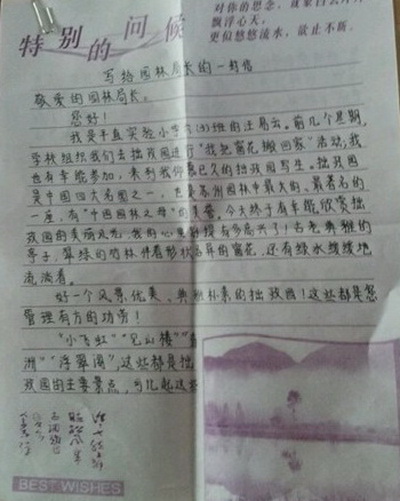 特别的问候
对你的思念，就象白云片片
飘浮心天，
更似悠悠流水，欲止不断。
写给园林局长的一封信
敬爱的园林局长：
您好！
我是平直实验小学 班的汪易云。前几个星期，
学校组织我们去拙政园进行“我把窗花搬回家”活动，我
也有幸能参加，来到我仰慕已久的拙政园写生。拙政园
是中国四大名园之一，也是苏州园林中最大的、最著名的
一座，有“中国园林之母”的美誉。今天终于有幸能欣赏拙
政园的美丽风光，我的心里别提有多高兴了！古老典雅的
亭子，翠绿的竹林伴着形状各异的窗花，还有绿水缓缓地
流淌着。
好一个风景优美、典雅朴素的拙政园！这些都是您
管理有方的功劳！
“小飞虹”“见山楼”
洲”“浮翠阁”，这些都是拙
政园的主要景点，可比起这些
BEST WISHES